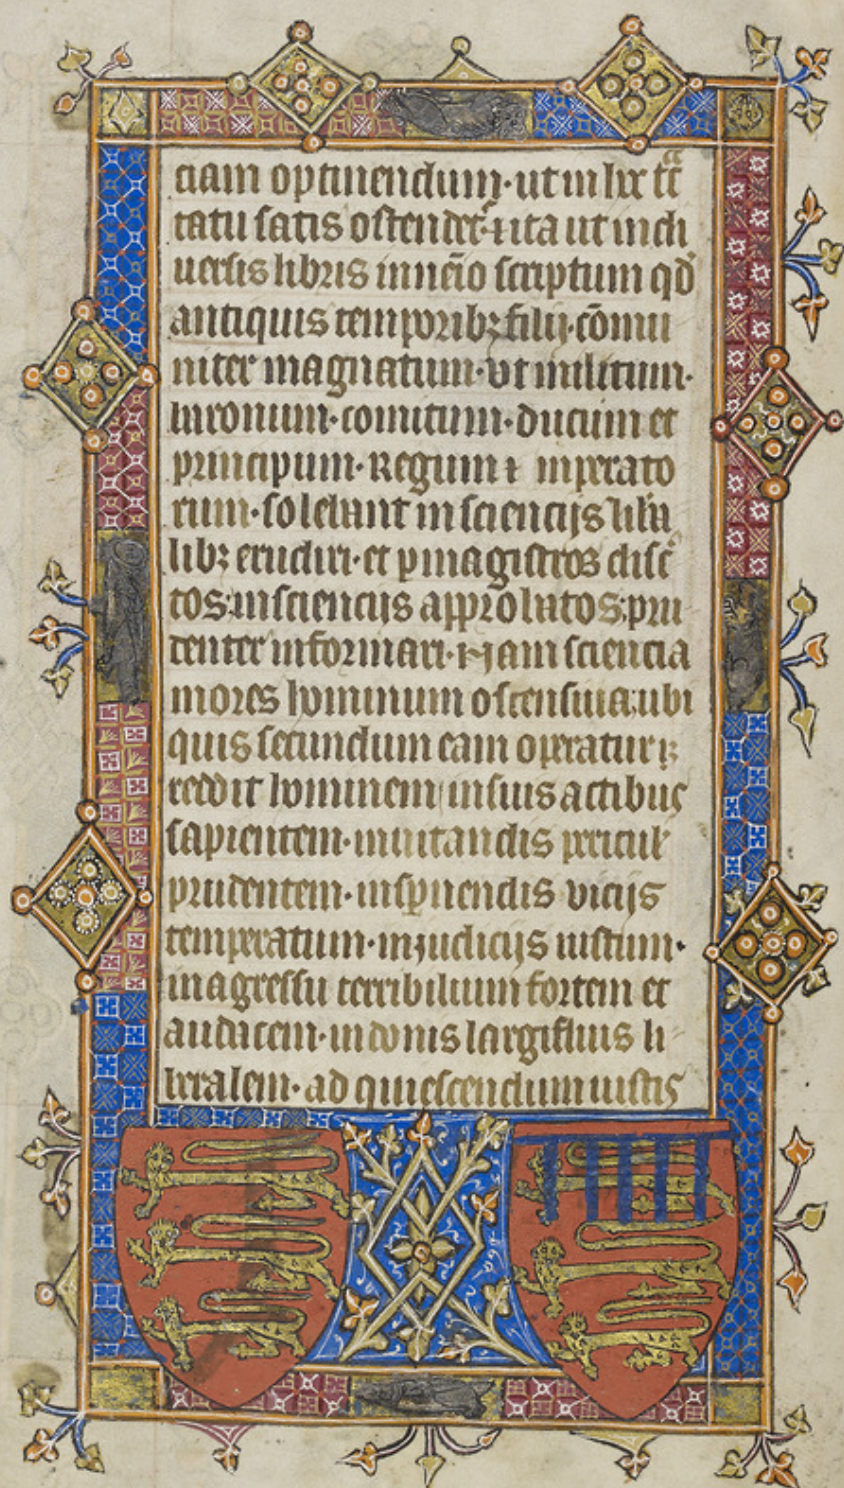 ciam optinendum · ut in hoc tra
tatu satis ostendet᷑ · ⁊ ita ut in di
uersis libris inuēio scriptum qd̛
antiquis temporibꝫ filij · cōmu
niter magnatum · vt militum ·
baronum · comitum · ducum et
principum · Regum ⁊ inperato
rum · solebant in sciencijs liba
libꝫ erudiri · et ꝑ magistros disc̃
tos in sciencijs approbatos pru
denter informari · Nam sciencia
mores hominum ostensiua ubi
quis secundum eam operatur
reddit hominem in suis actibus
sapientem · in uitandis pericul̛
prudentem · in sꝑnendis vicijs
temperatum · in judicijs iustum ·
in agressu terribilium fortem et
audacem · in donis largifluis li
beralem · ad quiescendum iustis